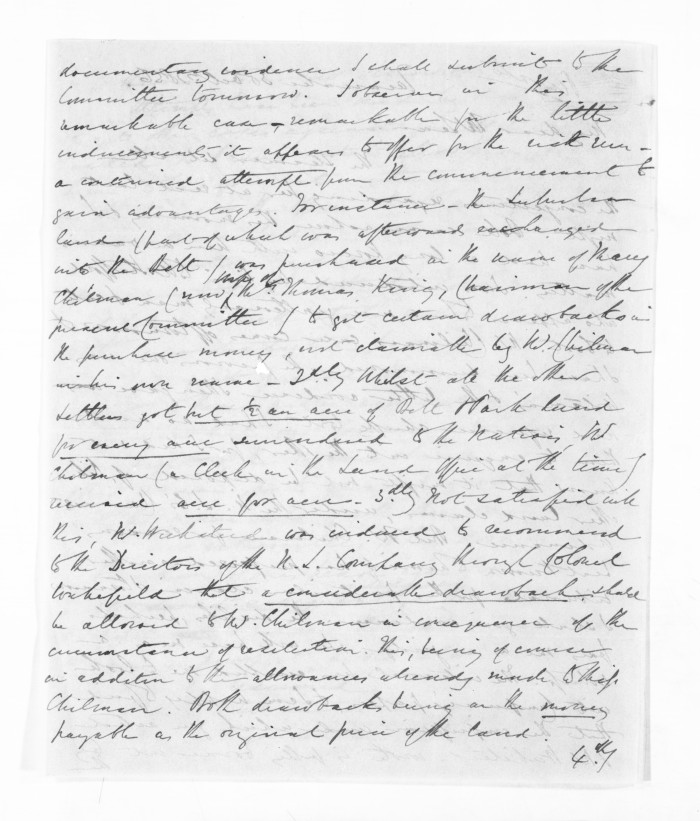 documentary evidence I shall submit to the
Committee tomorrow. I observe in this
remarkable case, remarkable for the little
inducements it appears to offer for the risk run -
a continued attempt from the commencement to
gain advantages. For instance - the Suburban
land (part of which was afterwards exchanged
into the Belt) was purchased in the name of Mary
Chilman (now wife of Mr Thomas King, Chairman of the
present Committee) to get certain drawbacks in
the purchase money, not claimable by W. Chilman
in his own name - 2dly Whilst all the other
settlers got but ½ an acre of Belt & Park land
for every acre surrendered to the Natives, Mr
Chilman (a Clerk in the Land office at the time)
received acre for acre - 3dly Not satisfied with
this, Mr. Wicksteed was induced to recommend
to the Directors of the N.Z. Company through Colonel
Wakefield that a considerable drawback should
be allowed to W. Chilman in consequence of the
circumstance of reselection. This, being of course
in addition to the allowances already made to Miss
Chilman. Both drawbacks being in the money
payable as the original price of the land.
4th/